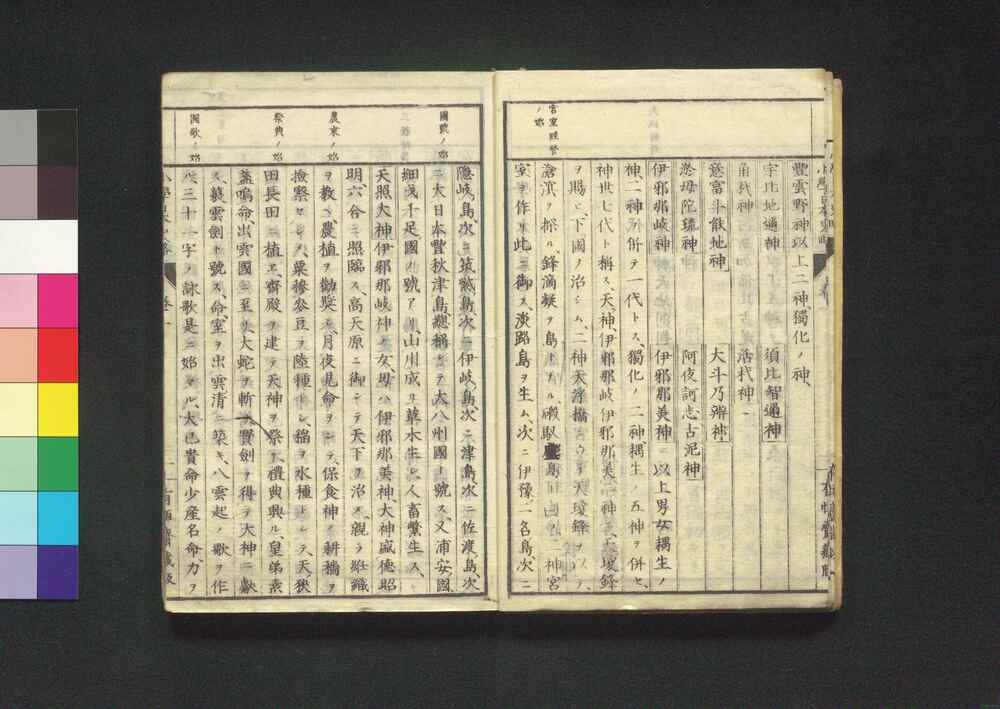 豐雲野神以上二神、獨化ノ神、
宇比地邇神
須比智邇神
角杙神
活杙神
意富斗能地神
大斗乃辨神
淤母陀琉神
阿夜訶志古泥神
伊邪那岐神
伊邪那美神 以上男女耦生ノ
神、二神ヲ併テ一代トス、獨化ノ二神、耦生ノ五神ヲ併セ、
神世七代ト稱ス、天神伊邪那岐伊邪那美二神ニ天瓊鋒
ヲ賜ヒ、下國ノ治シム、二神天浮橋ニ立チ天瓊鋒ヲ
滄溟ヲ探ル、鋒滴凝テ島トナル、磤馭盧島曰
宮室經營ノ始
室ヲ作リ此ニ御ス、淡路島ヲ生ム、次ニ伊豫二名島、次ニ
隱岐島、次ニ筑紫島、次ニ伊岐島、次ニ津島、次ニ佐渡島、次
國號ノ始
ニ大日本豐秋津島、總稱シテ大八州國ト號ス、又浦安國
細戈千足國ノ號アリ、山川成リ草木生シ、人畜鱉生ス、
天照大神伊邪那岐神ノ女、母ハ伊邪那美神、大神威德昭
明、六合ニ照臨ス、高天原ニ御シテ天下ヲ治ス、親ラ蠶織
農東ノ始
ヲ教ヘ農植ヲ勸奬ス、月夜見命ヲシテ、保食神ノ耕穡ヲ
撿察セシム、粟穇麥豆ヲ陸種トシ、稻ヲ水種トシテ、天狹
祭典ノ始
田長田ニ植エ、齋殿ヲ建テ天神ヲ祭ル、禮典興ル、皇弟素
盞嗚命出雲國ニ至リ大蛇ヲ斬リ寶劍ヲ得テ大神ニ獻
ス、叢雲劍ト號ス、命、室ヲ出雲清ニ築キ、八雲起ノ歌ヲ作
國歌ノ始
ル、三十一字ノ詠歌是ニ始マル、大已貴命少産名命、力ヲ